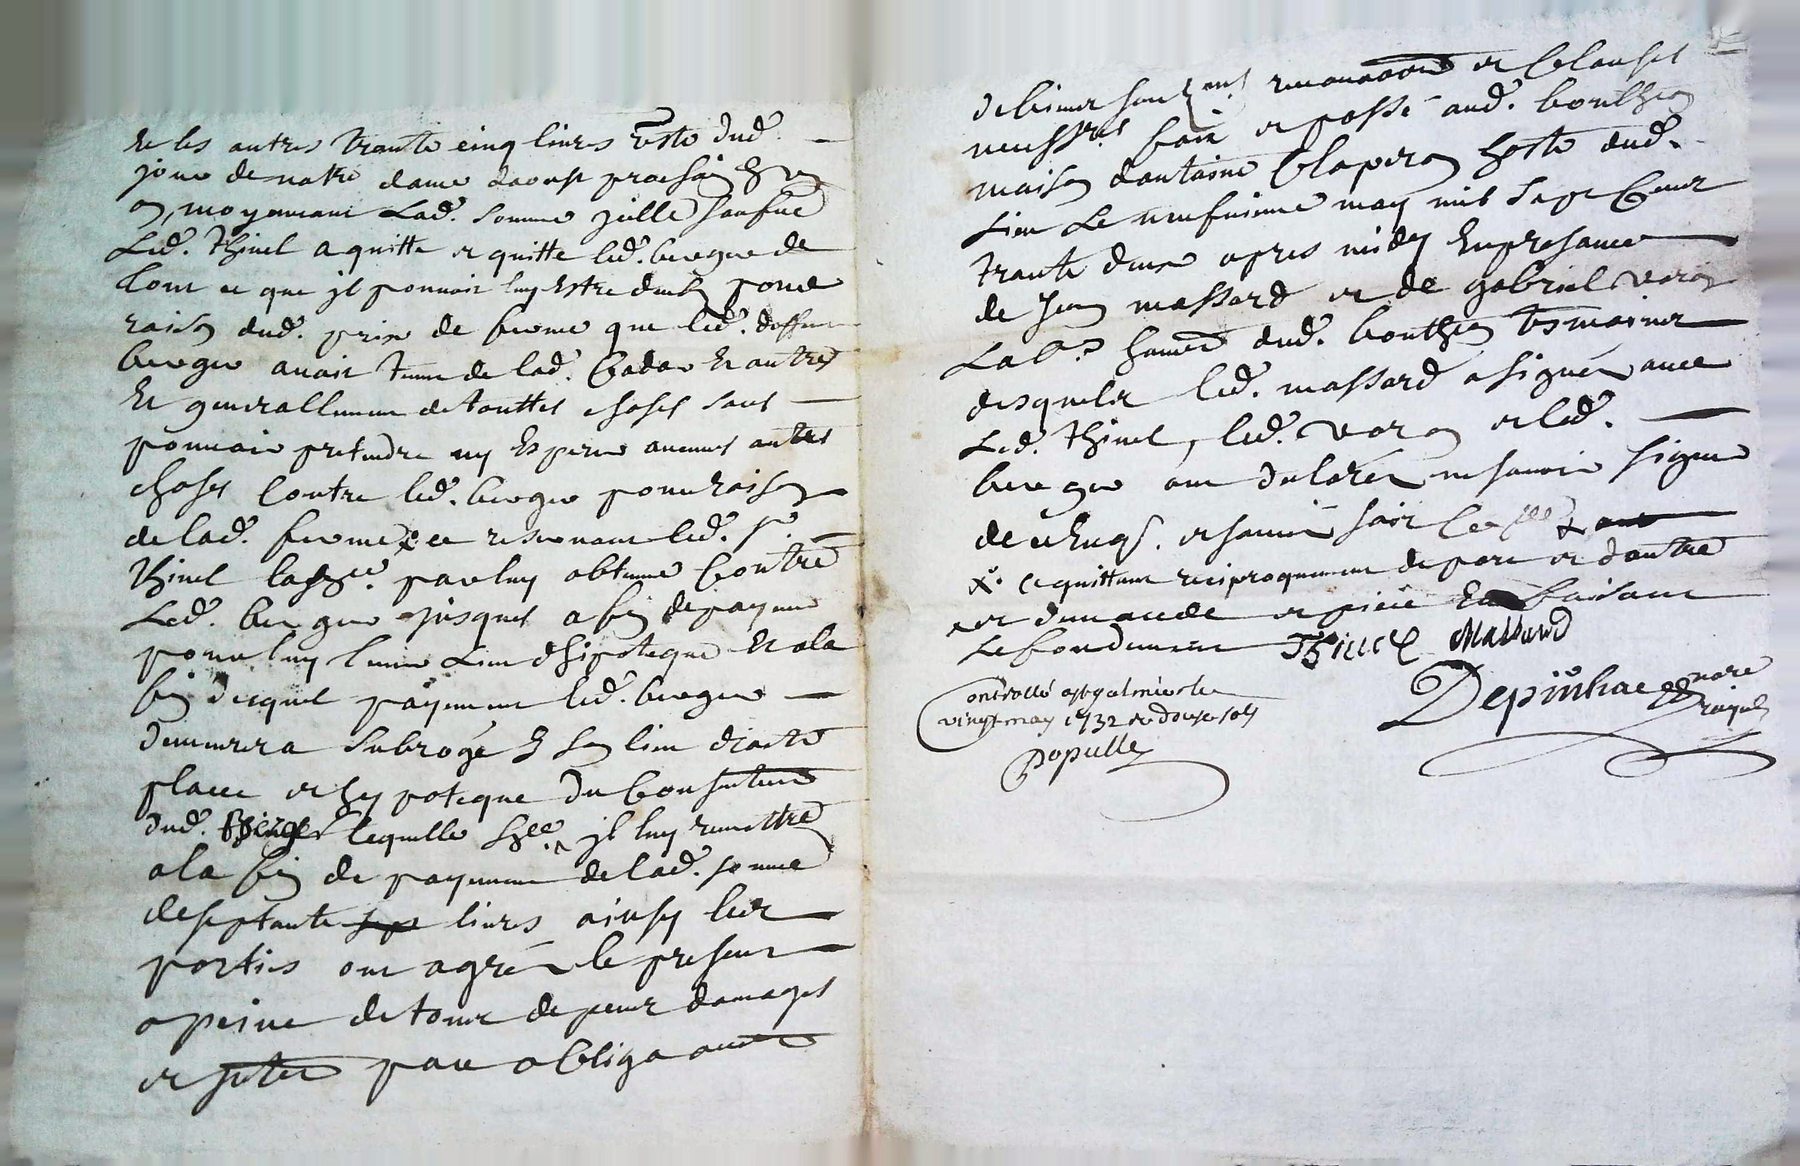 et les autres trante cinq livres reste dud.
jour de notre dame daoust prochain
moyennant lad. somme jcelle sauf que
Led. thinel a quitte et quitte led. berger de
tout ce que jl pouvoit luy estre deub pour
raison dud. prix de ferme que led. deffunt
berger avoit tenue de lad. et autres
et generallement de touttes choses sans
pouvoir pretendre ny esperer aucunes autres
choses contre led. berger pour raison
de lad. ferme et ce reservant led. sr.
thinel par luy obtenue contre
Led. berger jusques a fin de payement
pour luy tenir lieu dhipoteque et a la
fin duquel payement led. berger
demeurera subrogé en son lieu droit
place et hypoteque du consentement
dud. thinel laquelle jl luy remettra
a la fin de payement de lad. somme
de septante livres ainsy les
parties ont agréé le present
a peine de tous despens damages
et par obligaon
de biens renonaons et clauses
necessres. fait et passé aud. boutheon
maison dantoine Claperon hoste dud.
Lieu Le neufvieme may mil sept cent
trante deux apres midy en presance
de Jean massard et de gabriel veron
Labr. dud. boutheon tesmoins
desquels led. massard a signé avec
Led. thinel, led. veron et led.
berger ont declaré ne savoir signer
de ce enqs. et sauf soit
x. ce quittant reciproquement de part et dautre
et demande et piece en faisant
Le fondement Thinel Massard
Depinhac nore
royal
Controllé a st galmier le
vingt may 1732 re douze sols
Populle